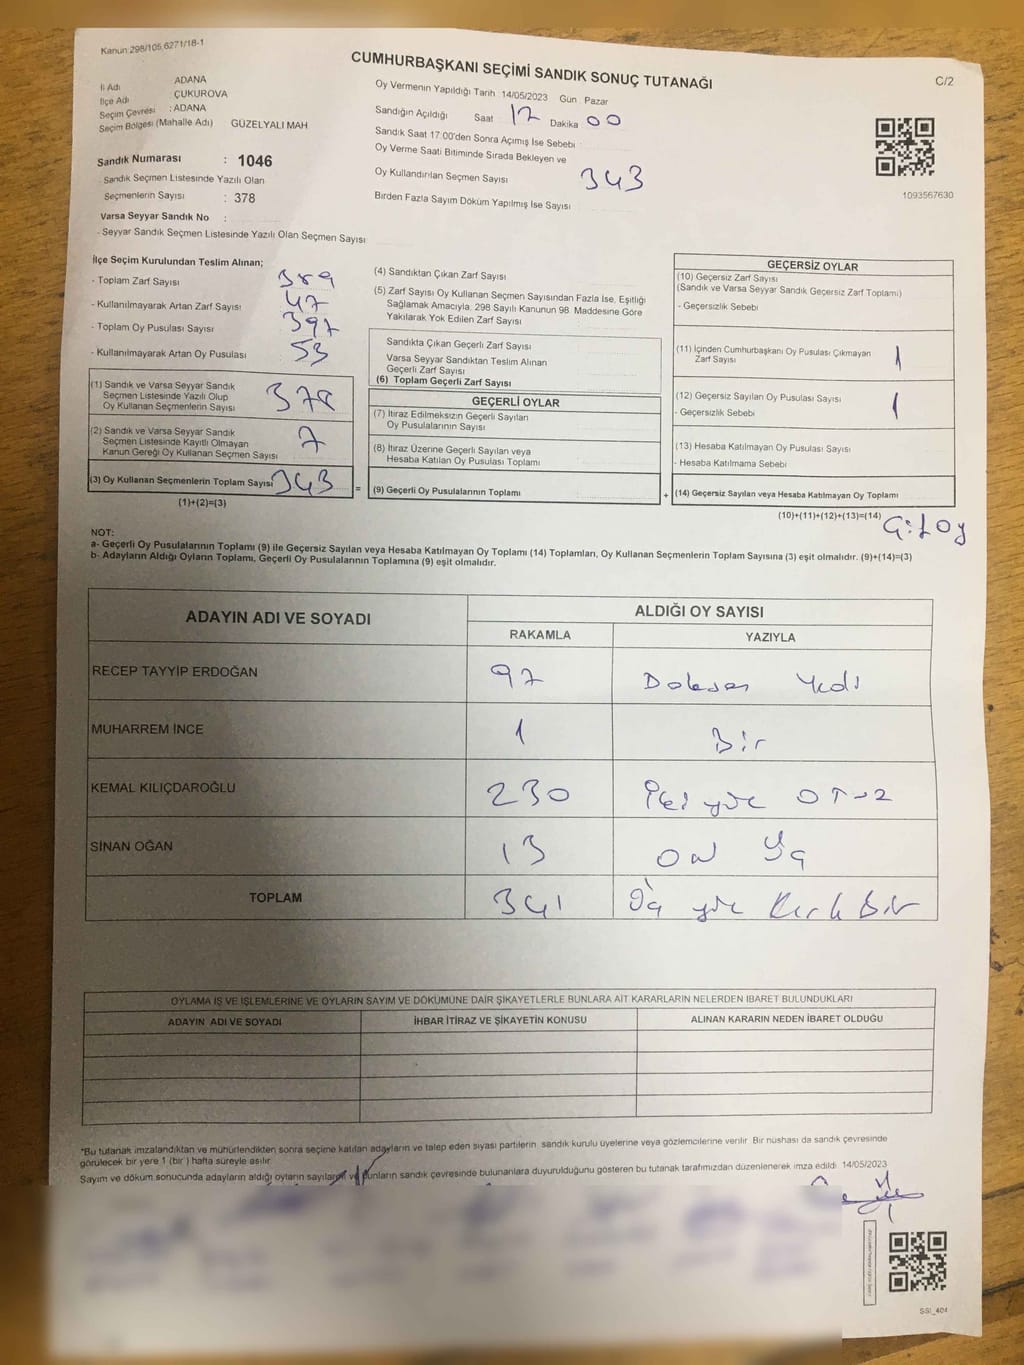 Kanun 298/105,6271/18-1
CUMHURBAŞKANI SEÇİMİ SANDIK SONUÇ TUTANAĞI
C/2
İl Adı ADANA
İlçe Adı ÇUKUROVA
Seçim Çevresi : ADANA
Seçim Bölgesi (Mahalle Adı) GÜZELYALI MAH
Sandık Numarası : 1046
Sandık Seçmen Listesinde Yazılı Olan
Seçmenlerin Sayısı : 378
Varsa Seyyar Sandık No :
- Seyyar Sandık Seçmen Listesinde Yazılı Olan Seçmen Sayısı
Oy Vermenin Yapıldığı Tarih 14/05/2023 Gün Pazar
Sandığın Açıldığı Saat 17 Dakika 00
Sandık Saat 17:00'den Sonra Açımış İse Sebebi
Oy Verme Saati Bitiminde Sırada Bekleyen ve
Oy Kullandırılan Seçmen Sayısı 343
Birden Fazla Sayım Döküm Yapılmış İse Sayısı
1093567630
İlçe Seçim Kurulundan Teslim Alınan;
- Toplam Zarf Sayısı 389
- Kullanılmayarak Artan Zarf Sayısı 47
- Toplam Oy Pusulası Sayısı 397
- Kullanılmayarak Artan Oy Pusulası 53
(1) Sandık ve Varsa Seyyar Sandık
Seçmen Listesinde Yazılı Olup
Oy Kullanan Seçmenlerin Sayısı 378
(2) Sandık ve Varsa Seyyar Sandık
Seçmen Listesinde Kayıtlı Olmayan
Kanun Gereği Oy Kullanan Seçmen Sayısı 7
(3) Oy Kullanan Seçmenlerin Toplam Sayısı 343 =
(1)+(2)=(3)
(4) Sandıktan Çıkan Zarf Sayısı
(5) Zarf Sayısı Oy Kullanan Seçmen Sayısından Fazla İse, Eşitliği
Sağlamak Amacıyla, 298 Sayılı Kanunun 98. Maddesine Göre
Yakılarak Yok Edilen Zarf Sayısı
Sandıkta Çıkan Geçerli Zarf Sayısı
Varsa Seyyar Sandıktan Teslim Alınan
Geçerli Zarf Sayısı
(6) Toplam Geçerli Zarf Sayısı
GEÇERLİ OYLAR
(7) İtiraz Edilmeksizin Geçerli Sayılan
Oy Pusulalarının Sayısı
(8) İtiraz Üzerine Geçerli Sayılan veya
Hesaba Katılan Oy Pusulası Toplamı
(9) Geçerli Oy Pusulalarının Toplamı +
GEÇERSİZ OYLAR
(10) Geçersiz Zarf Sayısı
(Sandık ve Varsa Seyyar Sandık Geçersiz Zarf Toplamı)
- Geçersizlik Sebebi
(11) İçinden Cumhurbaşkanı Oy Pusulası Çıkmayan
Zarf Sayısı 1
(12) Geçersiz Sayılan Oy Pusulası Sayısı 1
- Geçersizlik Sebebi
(13) Hesaba Katılmayan Oy Pusulası Sayısı
- Hesaba Katılmama Sebebi
(14) Geçersiz Sayılan veya Hesaba Katılmayan Oy Toplamı
(10)+(11)+(12)+(13)=(14)
NOT:
a- Geçerli Oy Pusulalarının Toplamı (9) ile Geçersiz Sayılan veya Hesaba Katılmayan Oy Toplamı (14) Toplamları, Oy Kullanan Seçmenlerin Toplam Sayısına (3) eşit olmalıdır. (9)+(14)=(3)
b- Adayların Aldığı Oyların Toplamı, Geçerli Oy Pusulalarının Toplamına (9) eşit olmalıdır.
ADAYIN ADI VE SOYADI ALDIĞI OY SAYISI
RAKAMLA YAZIYLA
RECEP TAYYİP ERDOĞAN 97 Doksan Yedi
MUHARREM İNCE 1 Bir
KEMAL KILIÇDAROĞLU 230 İki yüz OTuz
SİNAN OĞAN 13 ON Üç
TOPLAM 341 Üç yüz Kırk Bir
OYLAMA İŞ VE İŞLEMLERİNE VE OYLARIN SAYIM VE DÖKÜMÜNE DAİR ŞİKAYETLERLE BUNLARA AİT KARARLARIN NELERDEN İBARET BULUNDUKLARI
ADAYIN ADI VE SOYADI İHBAR İTİRAZ VE ŞİKAYETİN KONUSU ALINAN KARARIN NEDEN İBARET OLDUĞU
*Bu tutanak imzalandıktan ve mühürlendikten sonra seçime katılan adayların ve talep eden siyasi partilerin sandık kurulu üyelerine veya gözlemcilerine verilir. Bir nüshası da sandık çevresinde
görülecek bir yere 1 (bir) hafta süreyle asılır.
Sayım ve döküm sonucunda adayların aldığı oyların sayıları ve bunların sandık çevresinde bulunanlara duyurulduğunu gösteren bu tutanak tarafımızdan düzenlenerek imza edildi. 14/05/2023
SSI_404